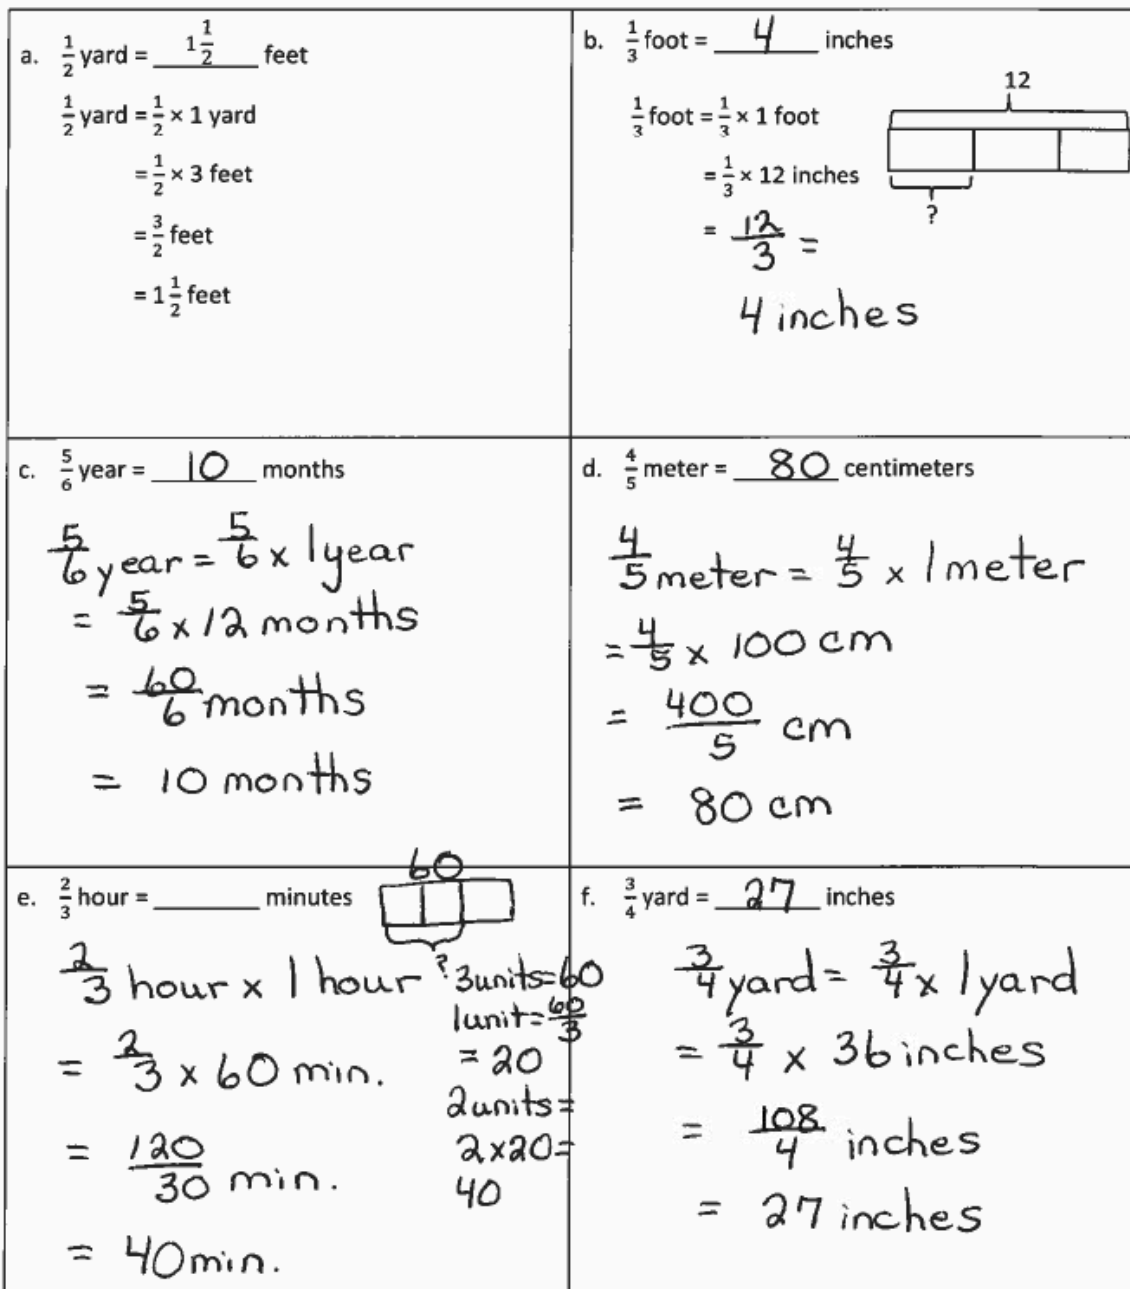 a. 1/2 yard = 1 1/2 feet
1/2 yard = 1/2 × 1 yard
= 1/2 × 3 feet
= 3/2 feet
= 1 1/2 feet
b. 1/3 foot = 4 inches
12
1/3 foot = 1/3 × 1 foot
= 1/3 × 12 inches
?
= 12/3 =
4 inches
c. 5/6 year = 10 months
5/6 year = 5/6 × 1 year
= 5/6 × 12 months
= 60/6 months
= 10 months
d. 4/5 meter = 80 centimeters
4/5 meter = 4/5 × 1 meter
= 4/5 × 100 cm
= 400/5 cm
= 80 cm
e. 2/3 hour = ______ minutes
60
?
2/3 hour × 1 hour
= 2/3 × 60 min.
= 120/30 min.
= 40 min.
3 units = 60
1 unit = 60/3
= 20
2 units =
2×20=
40
f. 3/4 yard = 27 inches
3/4 yard = 3/4 × 1 yard
= 3/4 × 36 inches
= 108/4 inches
= 27 inches